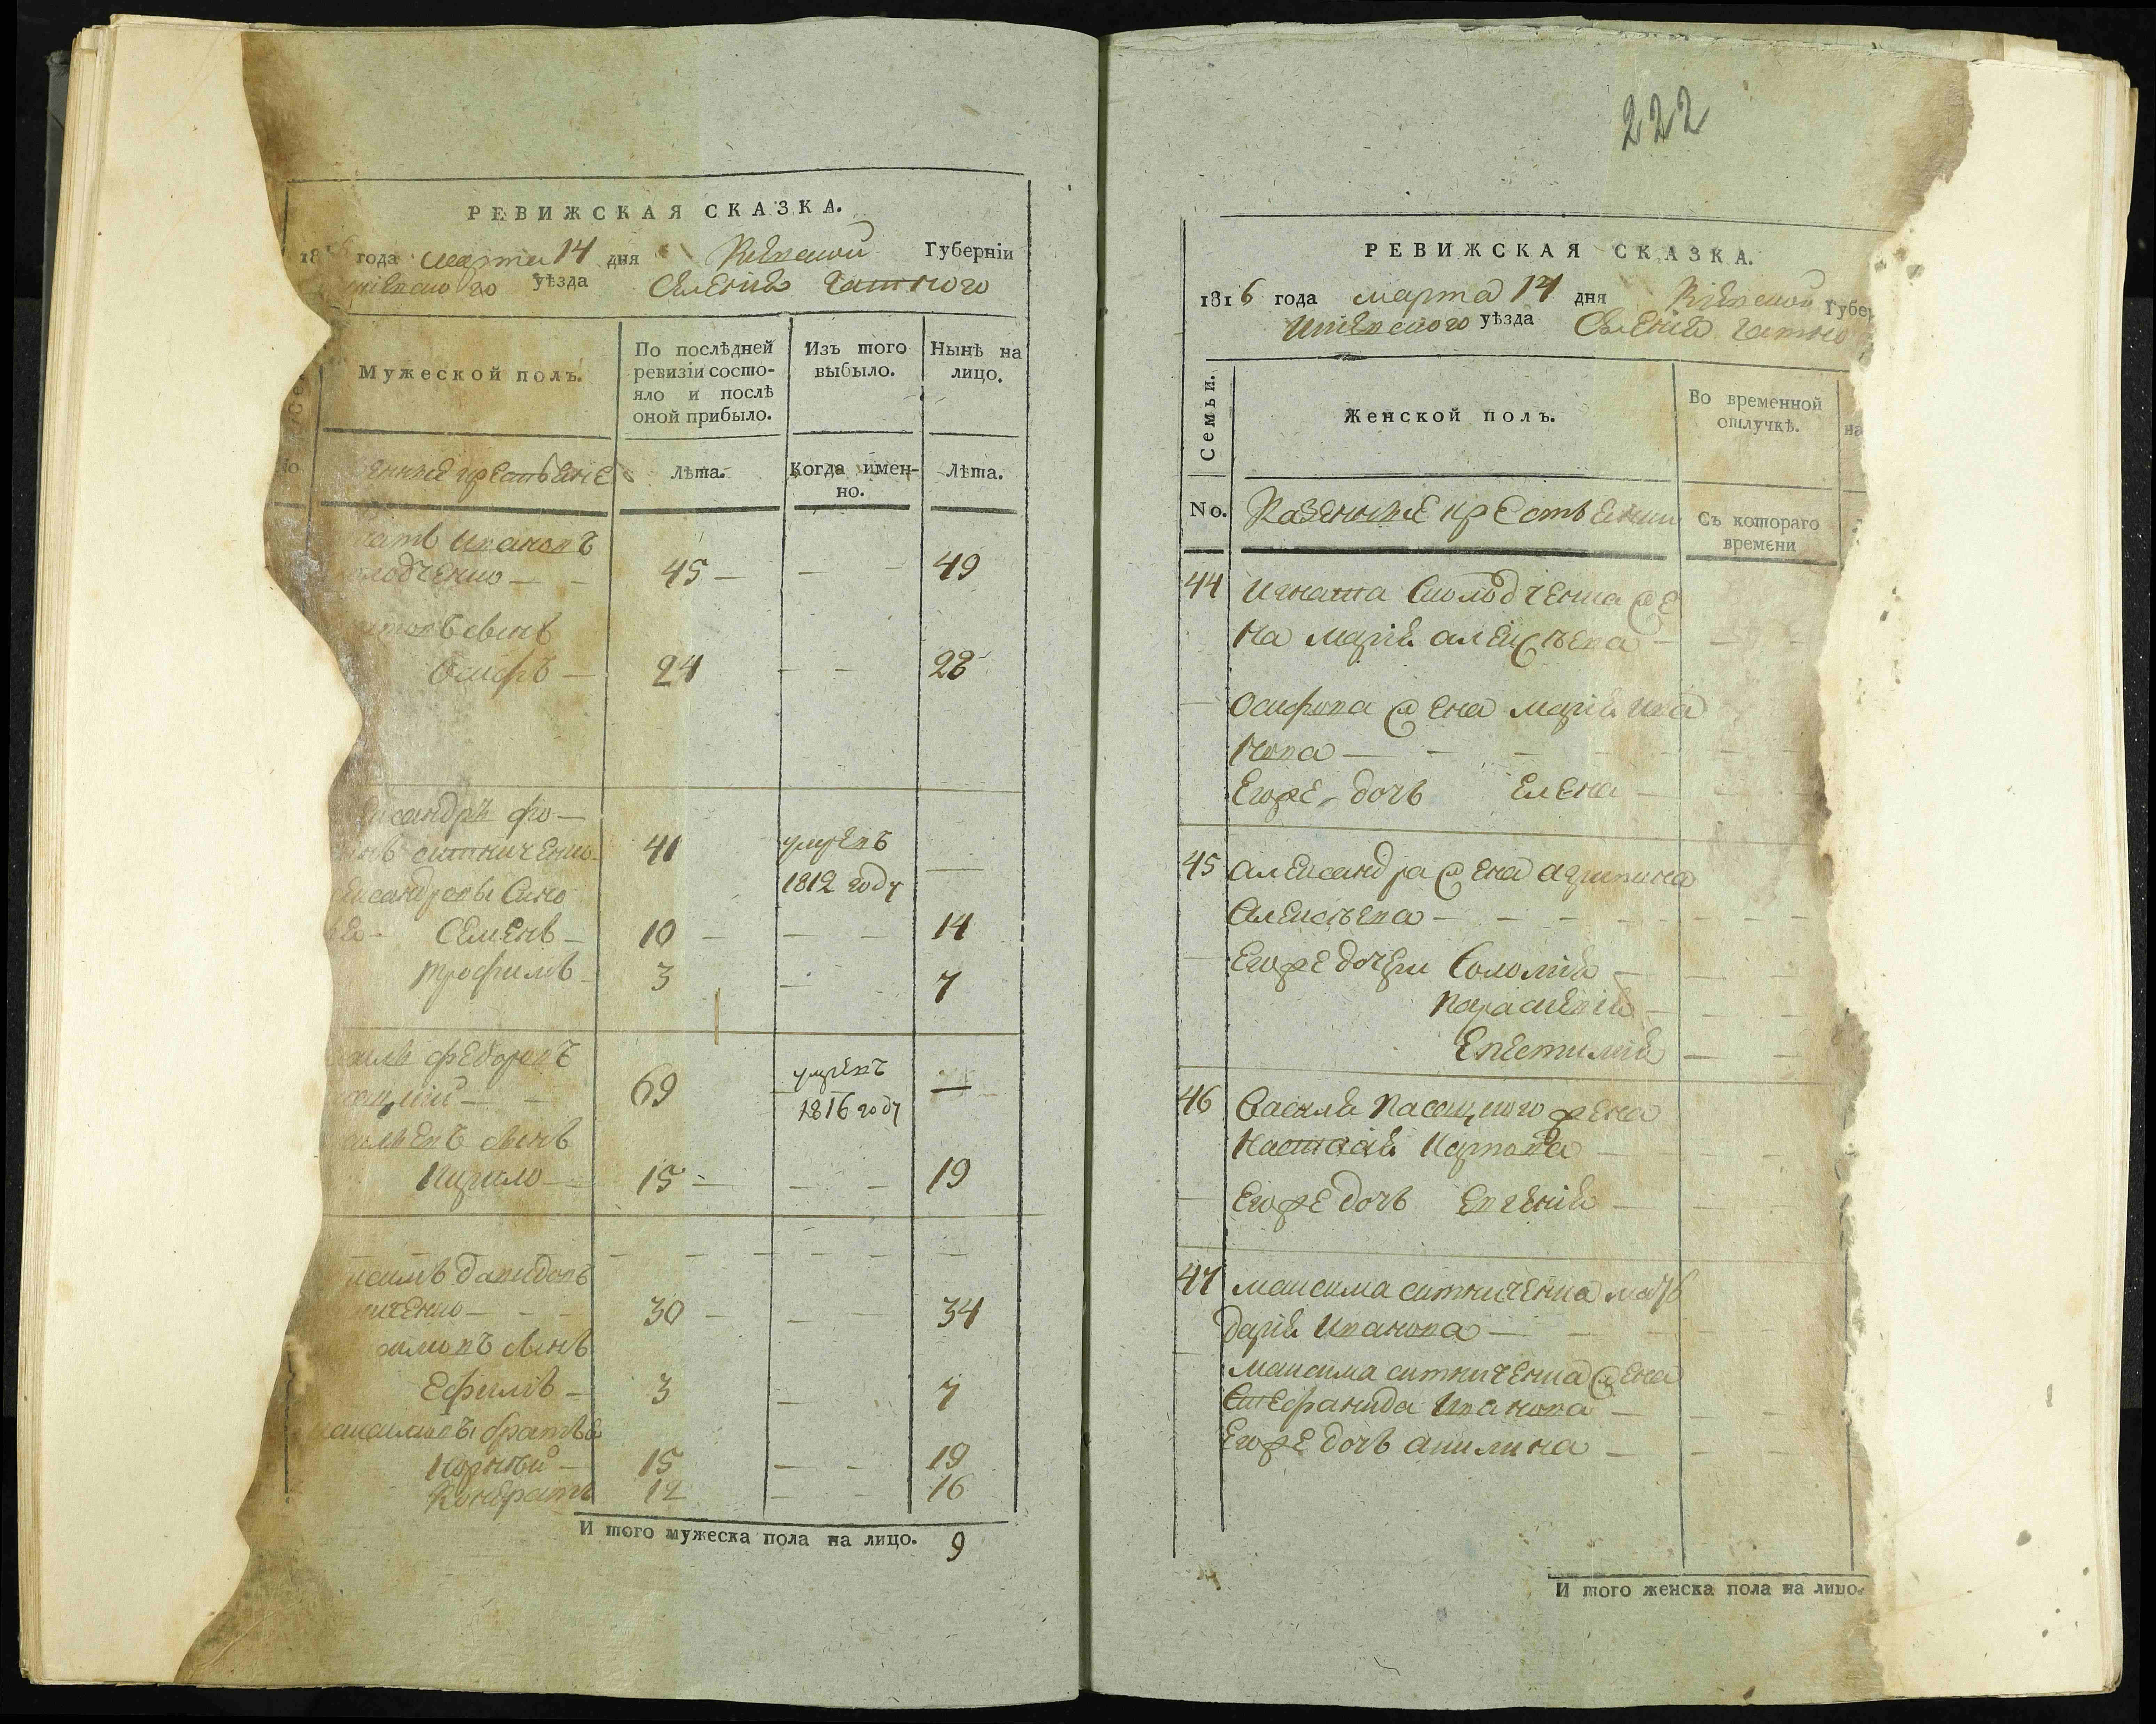 РЕВИЖСКАЯ СКАЗКА.
года марта 14 дня Кіевской Губерніи
уѣзда Селенія Гатного
Мужеской полъ.
По послѣдней ревизіи состо-
яло и послѣ
оной прибыло.
Изъ того
выбыло.
Нынѣ на
лицо.
No
Лѣта.
Когда имен-
но.
Лѣта.
натъ Ивановъ
олодченко — — 45 — — — 49
сынъ
Осифъ — 24 — — 28
ександръ фо —
ситниченко 41 умревъ
1812 году —
ександровы Сино
вя — Семенъ — 10 — — — 14
Трофимъ — 3 — 7
силій федоровъ
69 умревъ —
1816 году
сынъ
Кирило — 15 — — — 19
ксимъ давидовъ
ниченко — — — 30 — — — 34
симовъ сынъ
Ефимъ — 3 — 7
максимовы братья
Корнѣй — 15 — — 19
Кондратъ 12 — — 16
И того мужеска пола на лицо. 9
222
РЕВИЖСКАЯ СКАЗКА.
1816 года марта 14 дня Кіевской Губе
Кіевского уѣзда Селенія Гатно
Семьи.
Женской полъ.
Во временной
отлучкѣ.
на
No.
Казенные крестьянки
Съ котораго
времени
44 Игната Сколодченка же
на марія алексѣева —
Осифова жена марія ива
нова —
Егоже дочь Елена —
45 александра жена агрипина
алексѣева —
Егоже дочери Соломія —
Параскевія —
Евѣстимія —
46 Василія Пасецкого жена
Настасія Карпова —
Егоже дочь Евгенія —
47 максима ситниченка мать
дарія Иванова —
максима ситниченка жена
Стефанида Иванова —
Егоже дочь акилина —
И того женска пола на лицо.